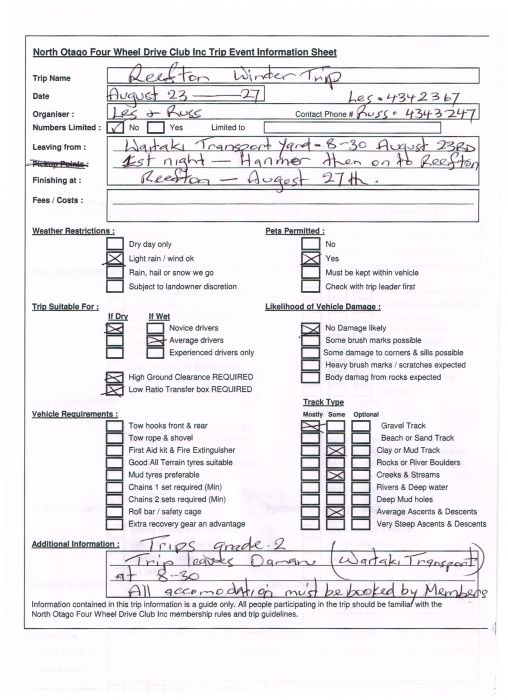 North Otago Four Wheel Drive Club Inc Trip Event Information Sheet
Trip Name Reefton Winter Trip
Date August 23 — 27 Les • 4342367
Organiser : Les & Russ Contact Phone # Russ • 4343247
Numbers Limited : No Yes Limited to
Leaving from : Waitaki Transport Yard - 8-30 August 23RD
Pickup Points : 1st night — Hanmer then on to Reefton
Finishing at : Reefton — August 27th.
Fees / Costs :
Weather Restrictions : Pets Permitted :
Dry day only No
Light rain / wind ok Yes
Rain, hail or snow we go Must be kept within vehicle
Subject to landowner discretion Check with trip leader first
Trip Suitable For : Likelihood of Vehicle Damage :
If Dry If Wet
Novice drivers No Damage likely
Average drivers Some brush marks possible
Experienced drivers only Some damage to corners & sills possible
Heavy brush marks / scratches expected
High Ground Clearance REQUIRED Body damag from rocks expected
Low Ratio Transfer box REQUIRED
Track Type
Vehicle Requirements : Mostly Some Optional
Tow hooks front & rear Gravel Track
Tow rope & shovel Beach or Sand Track
First Aid kit & Fire Extinguisher Clay or Mud Track
Good All Terrain tyres suitable Rocks or River Boulders
Mud tyres preferable Creeks & Streams
Chains 1 set required (Min) Rivers & Deep water
Chains 2 sets required (Min) Deep Mud holes
Roll bar / safety cage Average Ascents & Descents
Extra recovery gear an advantage Very Steep Ascents & Descents
Additional Information : Trips grade 2
Trip leaves Oamaru (Waitaki Transport)
at 8-30
All accomodation must be booked by Members
Information contained in this trip information is a guide only. All people participating in the trip should be familiar with the
North Otago Four Wheel Drive Club Inc membership rules and trip guidelines.